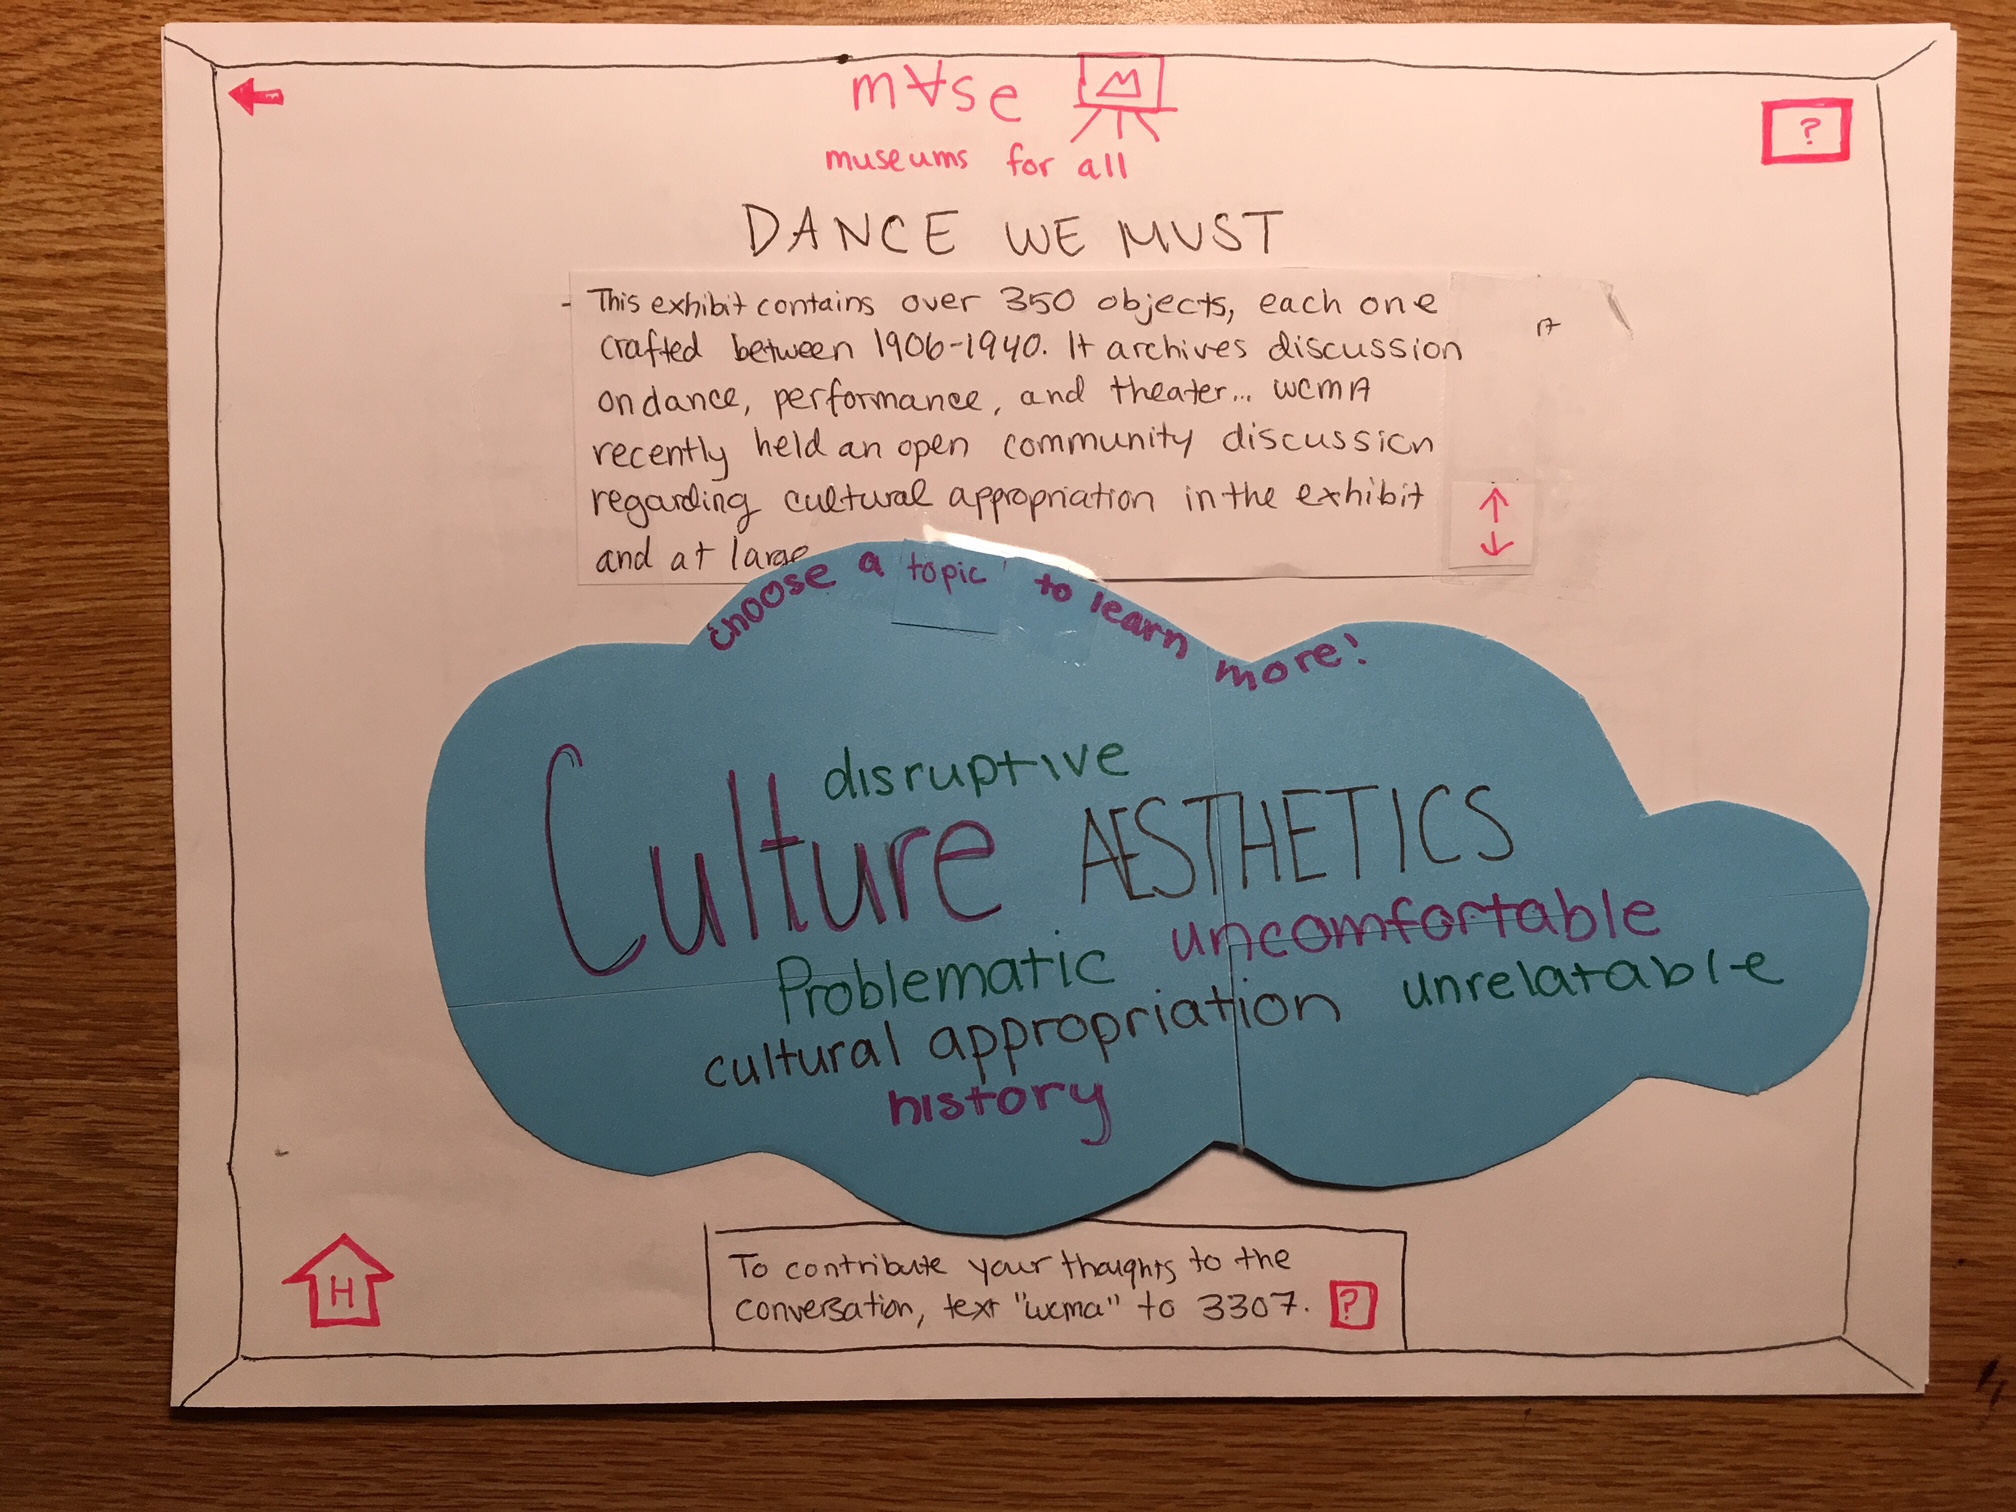 m∀se
museums for all
?
DANCE WE MUST
- This exhibit contains over 350 objects, each one
crafted between 1906-1940. It archives discussion
on dance, performance, and theater... WCMA
recently held an open community discussion
regarding cultural appropriation in the exhibit
and at large
choose a topic to learn more!
disruptive
Culture AESTHETICS
uncomfortable
Problematic
unrelatable
cultural appropriation
history
To contribute your thoughts to the
conversation, text "wcma" to 3307. ?
H